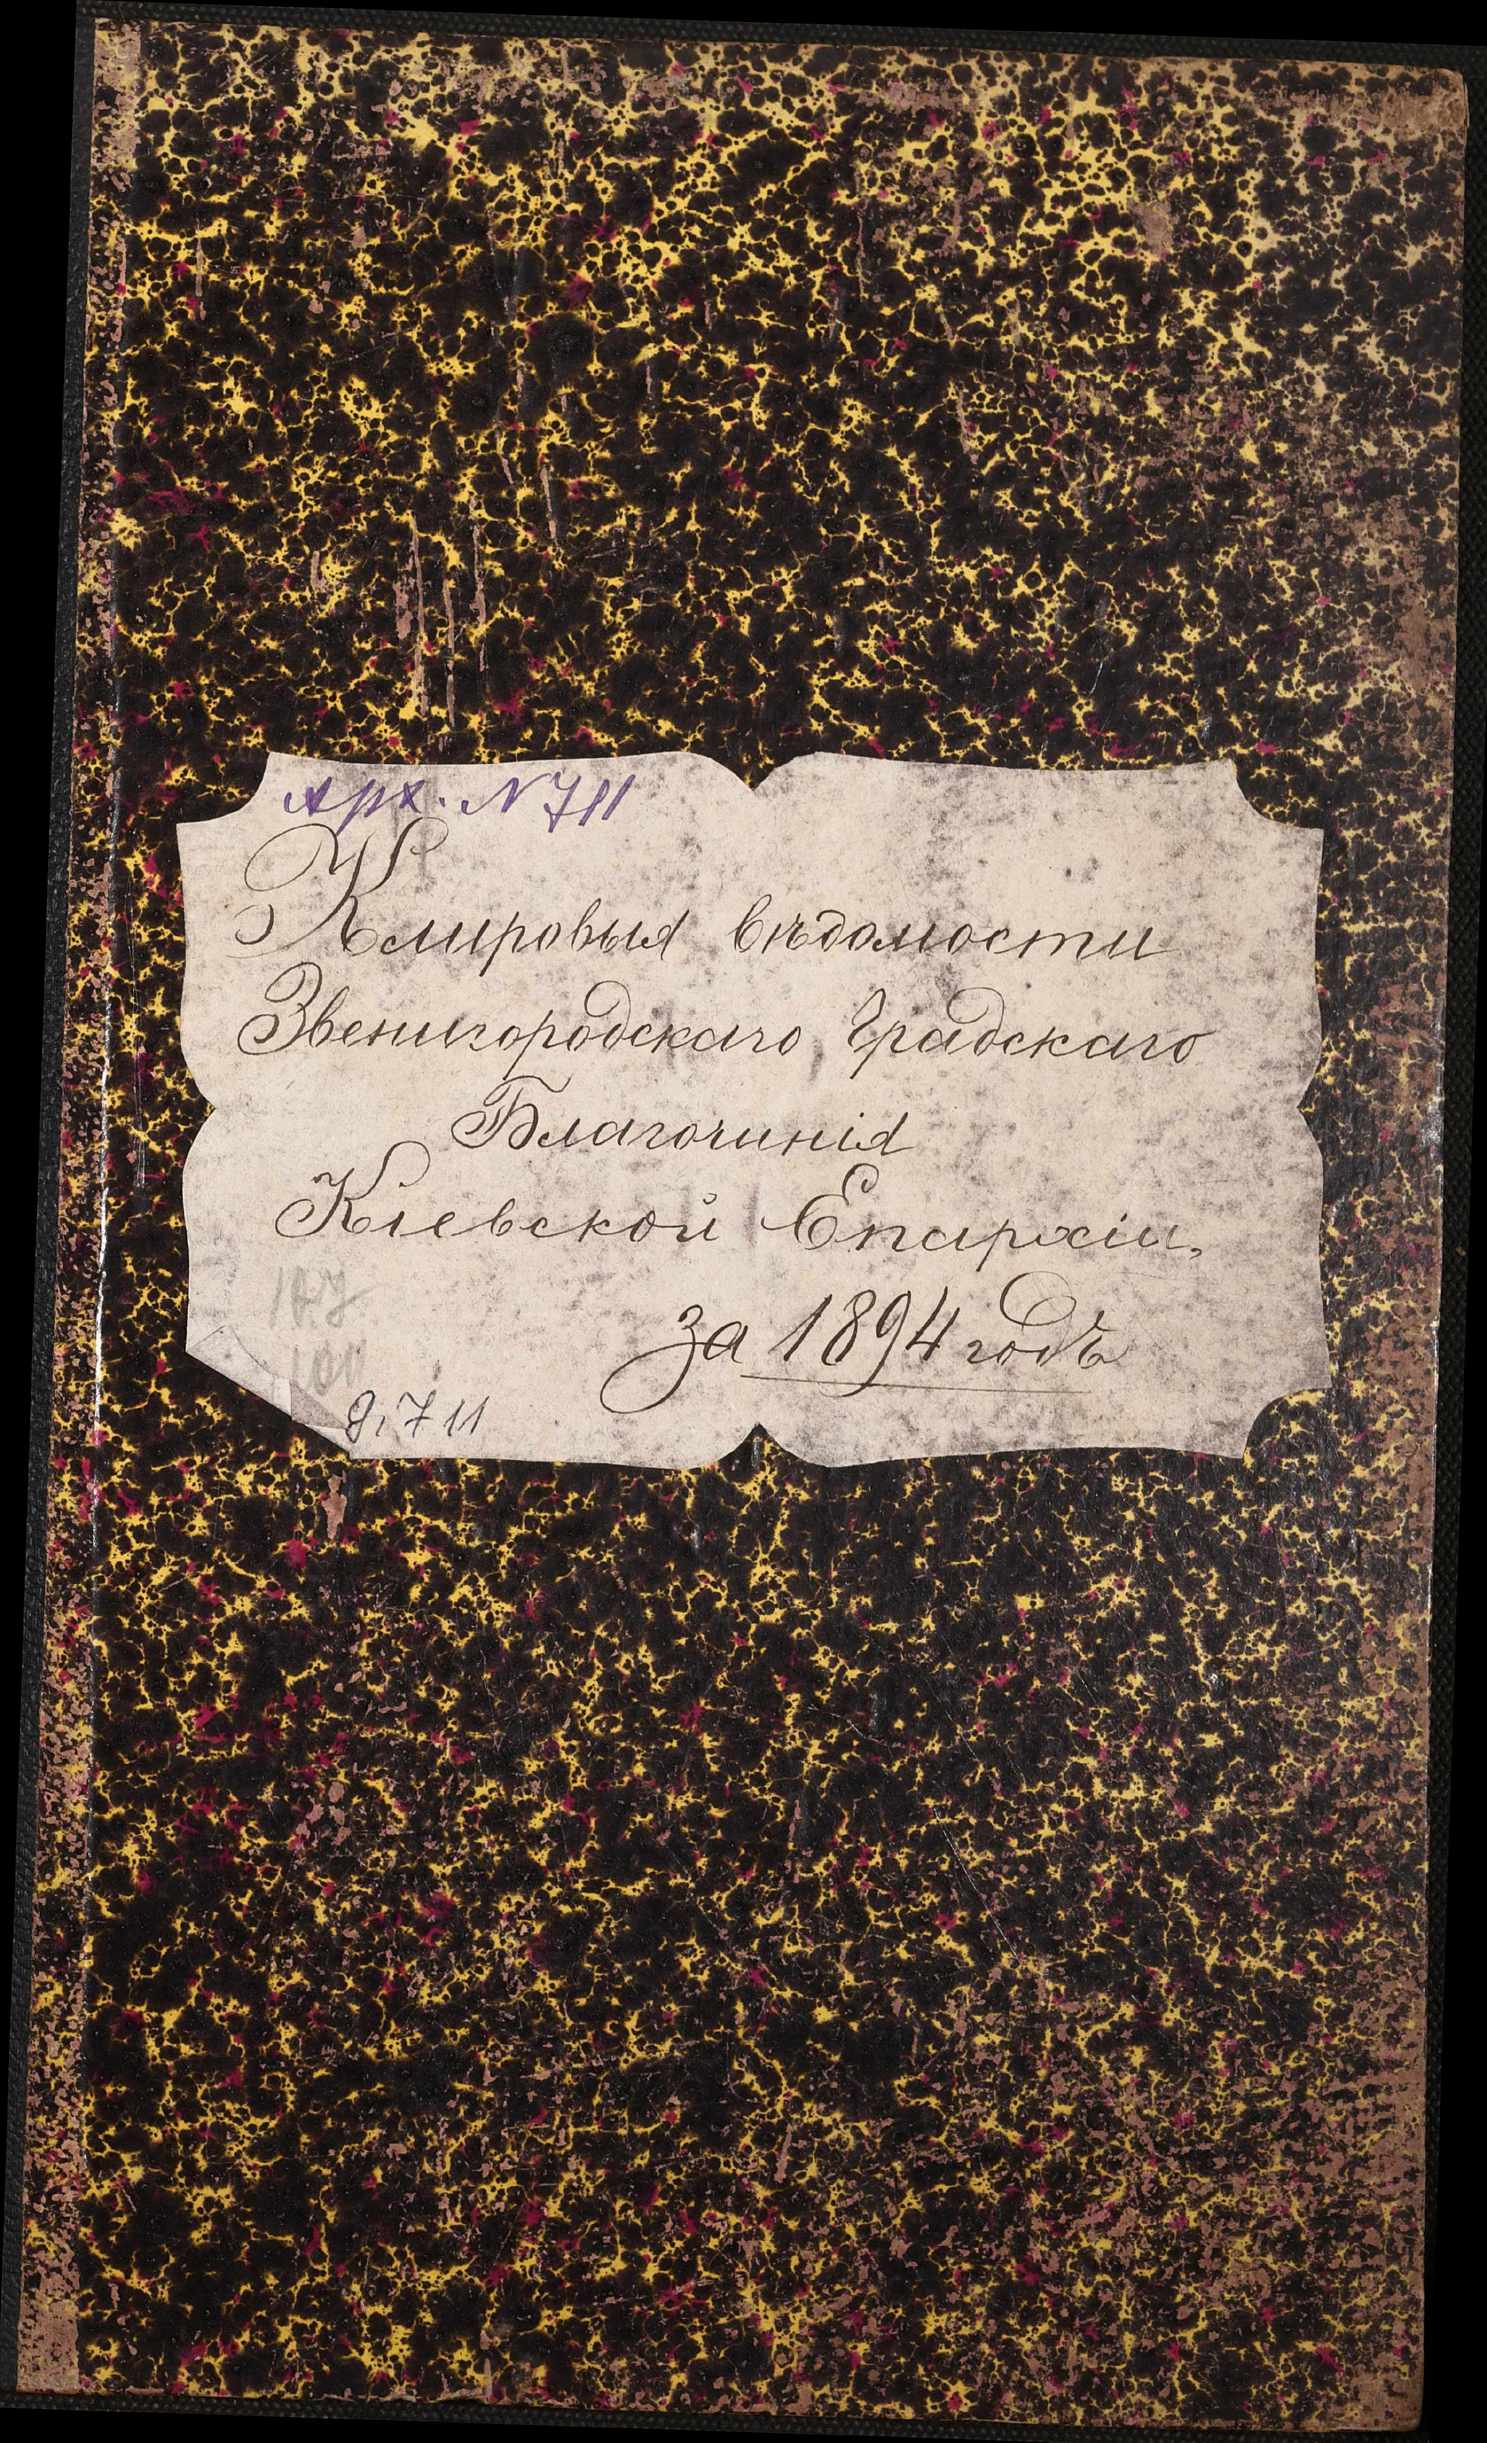 Арх. N 711
Клировыя вѣдомости
Звенигородскаго Градскаго
Благочинія
Кіевской Епархіи,
за 1894 годъ
107
д. 711